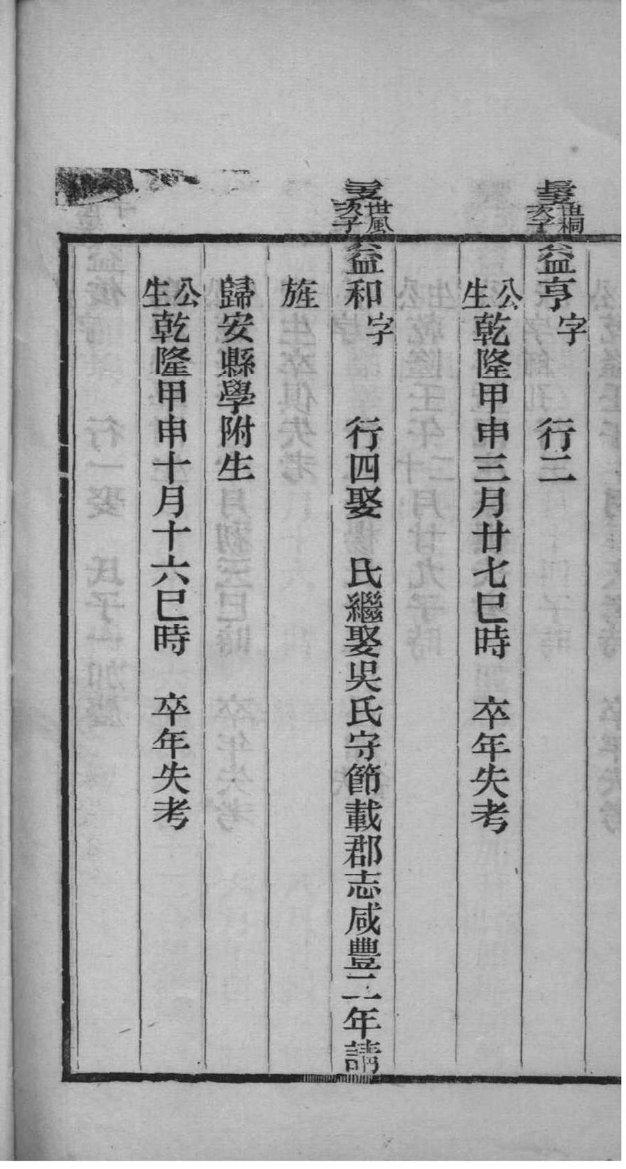 世桐次子
益亨字　行二
公生乾隆甲申三月廿七巳時　卒年失考
世風次子
益和字　行四娶　氏繼娶吳氏守節載郡志咸豐二年請
旌
歸安縣學附生
公生乾隆甲申十月十六巳時　卒年失考